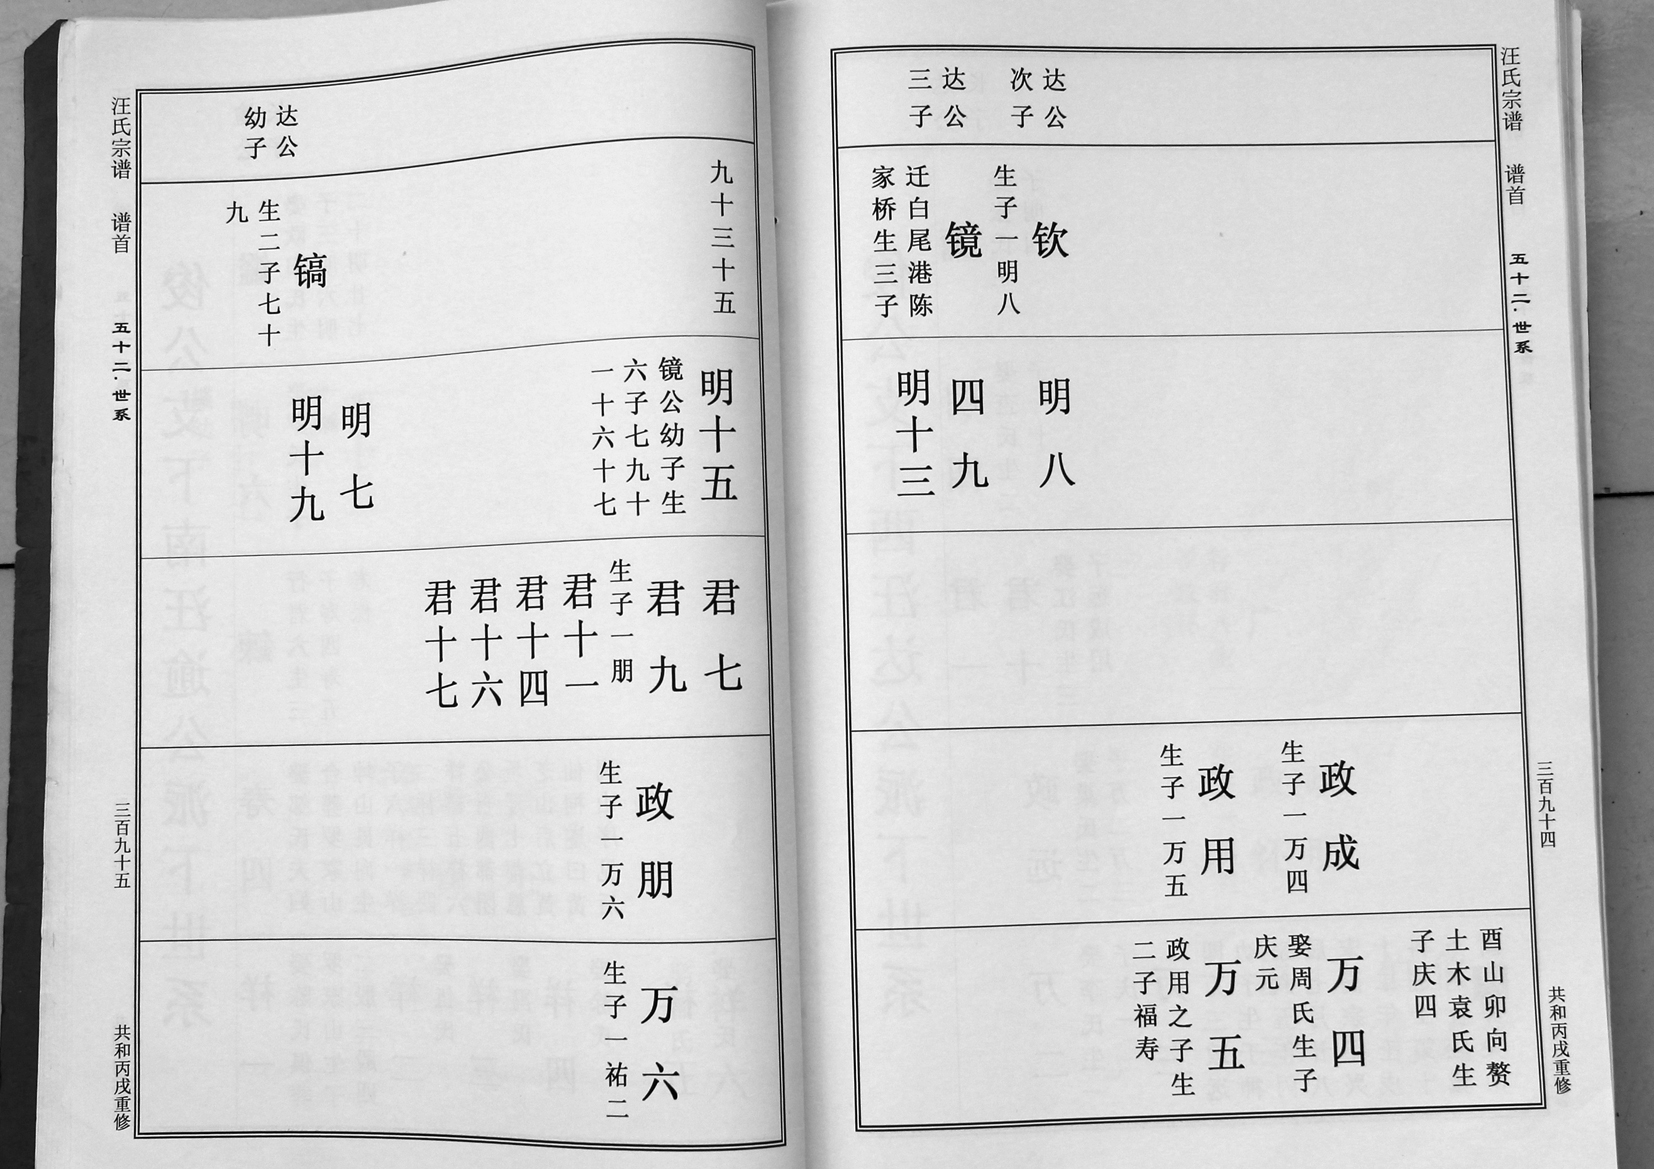 汪氏宗谱 谱首 五十二·世系 三百九十四 共和丙戌重修
达公
次子
达公
三子
钦
生子一明八
镜
迁白尾港陈
家桥生三子
明八
四九
明十三
政成
生子一万四
政用
生子一万五
酉山卯向赘
土木袁氏生
子庆四
万四
娶周氏生子
庆元
万五
政用之子生
二子福寿
九十三十五
达公
幼子
镐
生二子七十
九
明十五
镜公幼子生
六子七九十
一十六十七
明七
明十九
君七
君九
生子一朋
君十一
君十四
君十六
君十七
政朋
生子一万六
万六
生子一祐二
汪氏宗谱 谱首 五十二·世系 三百九十五 共和丙戌重修